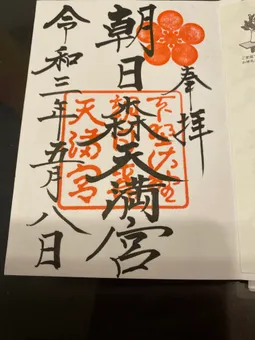 奉拝
朝日森天満宮
令和三年五月八日
天満宮